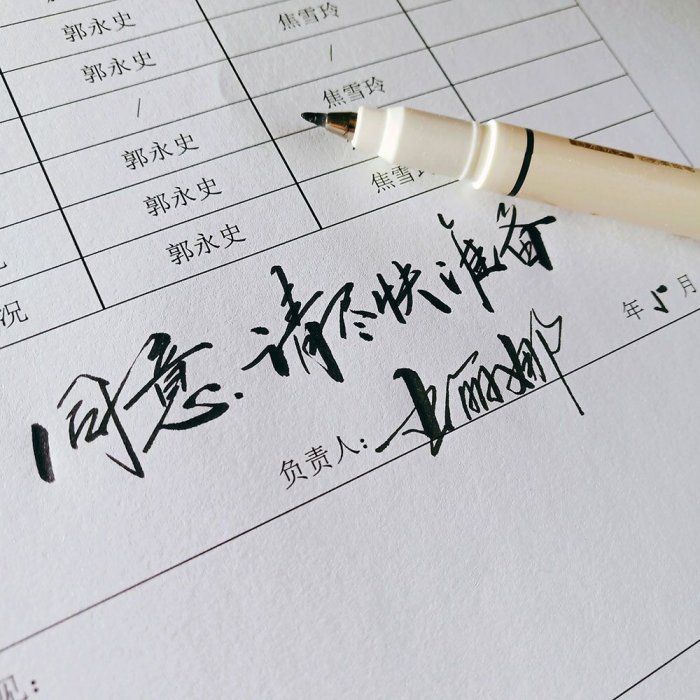 郭永史 焦雪玲
郭永史 /
/ 焦雪玲
郭永史
郭永史 焦雪玲
郭永史
况
同意.请尽快准备
年5月
负责人:
见: